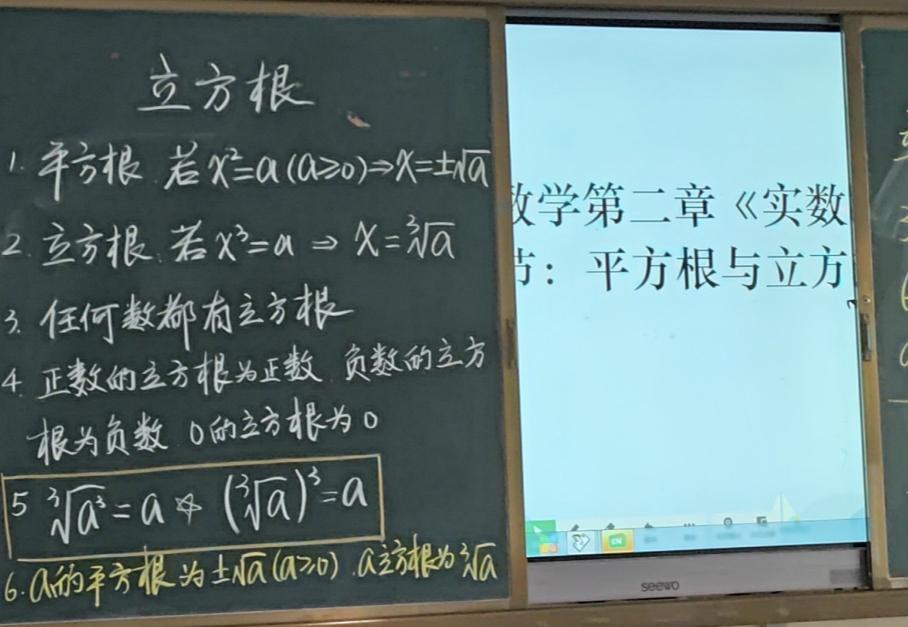 立方根
1. 平方根 若 x²=a (a≥0)⇒x=±√a
2. 立方根. 若 x³=a ⇒ x=∛a
3. 任何数都有立方根
4. 正数的立方根为正数 负数的立方
根为负数 0的立方根为0
5 ∛a³=a ☆ (∛a)³=a
6. a的平方根为±√a(a≥0). a立方根为∛a
数学第二章《实数
节：平方根与立方
EN
seewo